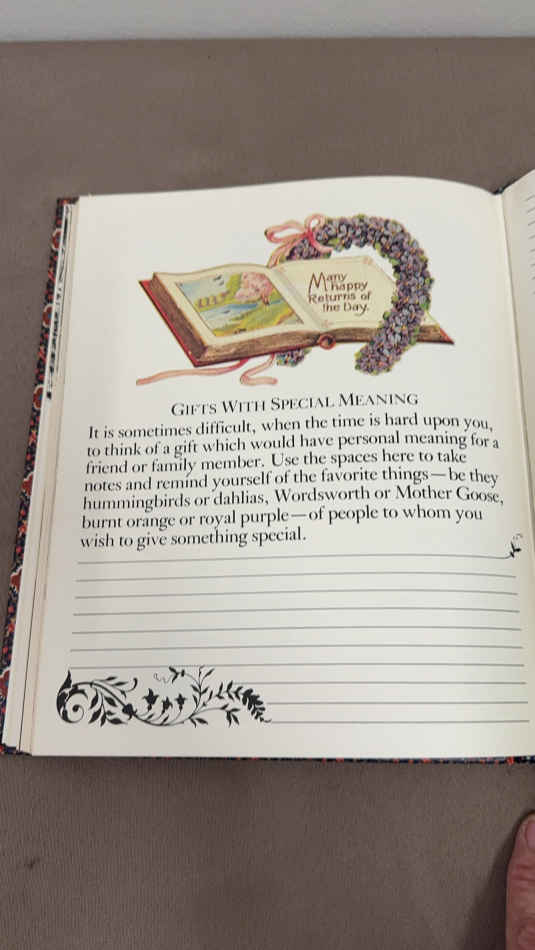 Many
happy
Returns of
the Day.
GIFTS WITH SPECIAL MEANING
It is sometimes difficult, when the time is hard upon you,
to think of a gift which would have personal meaning for a
friend or family member. Use the spaces here to take
notes and remind yourself of the favorite things—be they
hummingbirds or dahlias, Wordsworth or Mother Goose,
burnt orange or royal purple—of people to whom you
wish to give something special.